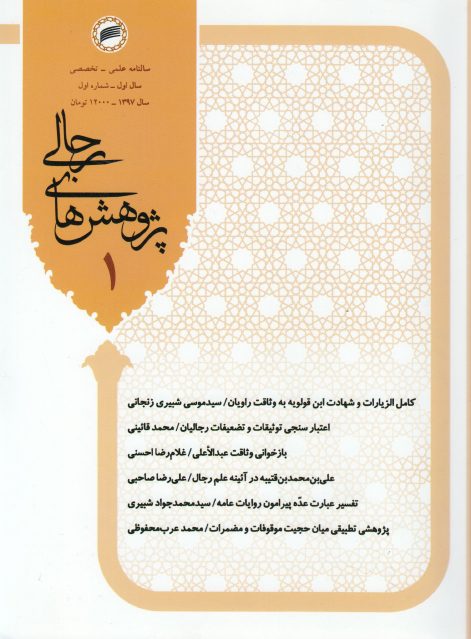 سالنامه علمی - تخصصی
سال اول - شماره اول
سال ۱۳۹۷ - ۱۲۰۰۰ تومان
پژوهش‌های رجالی
۱
کامل الزیارات و شهادت ابن قولویه به وثاقت راویان/ سیدموسی شبیری زنجانی
اعتبار سنجی توثیقات و تضعیفات رجالیان/ محمد قائینی
بازخوانی وثاقت عبدالأعلی/ غلام‌رضا احسنی
علی‌بن‌محمدبن‌قتیبه در آئینه علم رجال/ علی‌رضا صاحبی
تفسیر عبارت عدّه پیرامون روایات عامه/ سیدمحمدجواد شبیری
پژوهشی تطبیقی میان حجیت موقوفات و مضمرات/ محمد عرب‌محفوظی